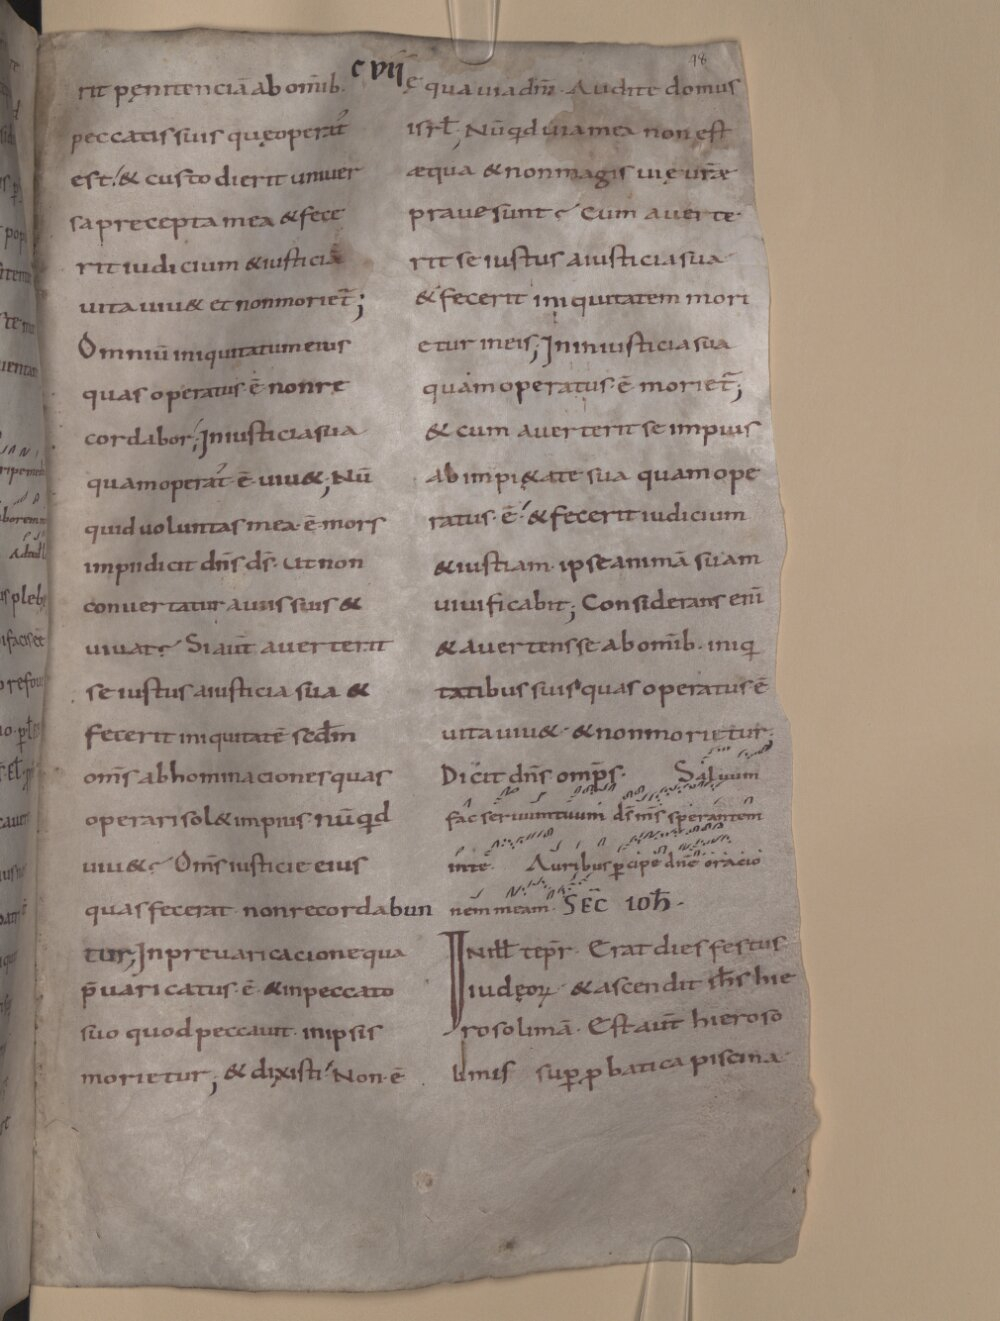 cvii
48
rit pęnitenciā ab om̄ib.
peccatis suis quę operat᷑
est. & custodierit univer
sa precepta mea & fece
rit iudicium & iusticiā
vita viu& et non moriet᷑;
Omniū iniquitatum eius
quas operatus ē non re
cordabor; In iusticia sua
quam operat᷑ ē viu&; Nū
quid voluntas mea ē mors
impii dicit dn̄s ds̄. Ut non
convertatur a viis suis &
vivat; Si aut̄ averterit
se iustus a iusticia sua &
fecerit iniquitatē secd̄m
om̄s abhominaciones quas
operari sol& impius nūqđ
viu&; Om̄s iusticie eius
quas fecerat non recordabun
tur; In prevaricacione qua
p̄varicatus ē & in peccato
suo quod peccavit. in ipsis
morietur; & dixisti Non ē
ę qua via dn̄i. Audite domus
isrł; Nūqđ via mea non est
æqua & non magis vię vr̄æ
prave sunt; Cum averte
rit se iustus a iusticia sua
& fecerit iniquitatem mori
etur in eis; In iniusticia sua
quam operatus ē moriet᷑;
& cum averterit se impius
ab impi&ate sua quam ope
ratus ē & fecerit iudicium
& iustiam. ipse animā suam
vivificabit; Considerans eni᷑
& avertens se ab om̄ib. iniq
tatibus suis quas operatus ē
vita viu& & non morietur;
Dicit dn̄s omp̄s. Salvum
fac servum tuum ds̄ m̄s sperantem
in te. Auribus ꝑcipe dn̄e oracio
nem meam. SEC̄ IOH̄.
IN ill̄ tep̄r. Erat dies festus
iudęoꝝ & ascendit ih̄s hie
rosolimā. Est aut̄ hieroso
limis suꝑ ꝓbatica piscina